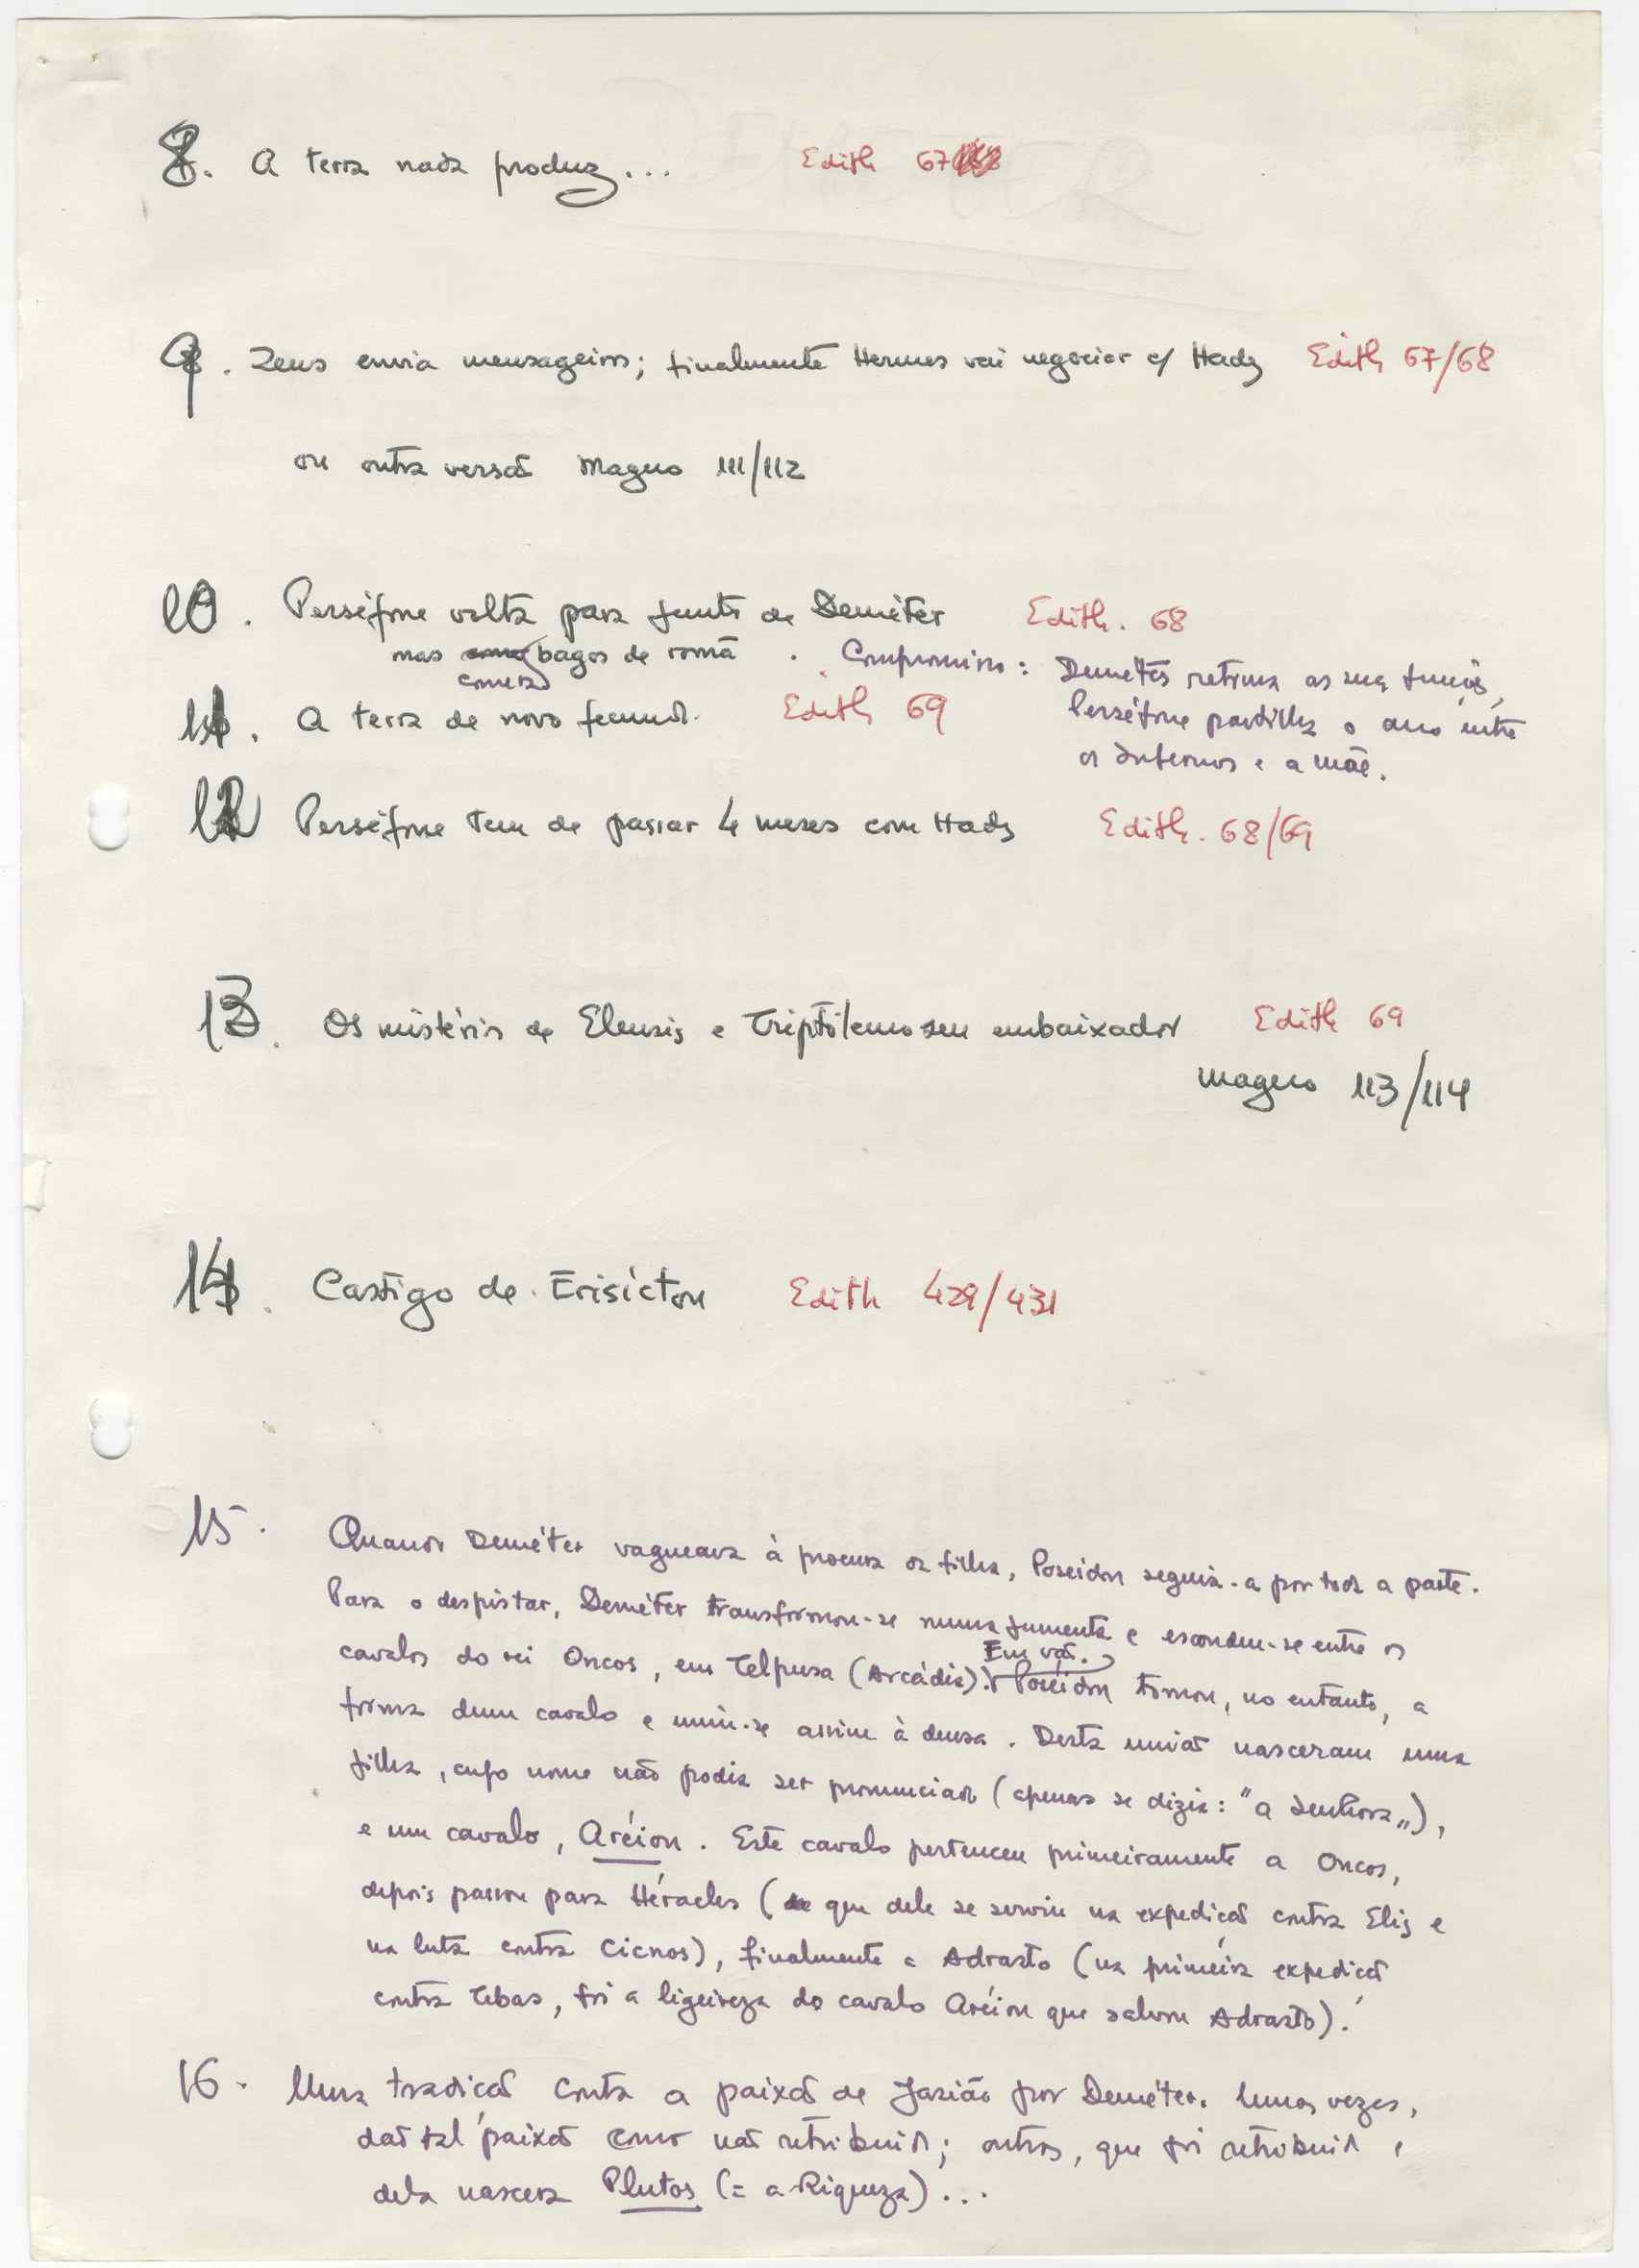 8. A terra nada produz... Edith 67
9. Zeus envia mensageiros; finalmente Hermes vai negociar c/ Hades Edith 67/68
ou outra versão Magno 111/112
10. Perséfone volta para junto de Deméter Edith. 68
mas comera bagos de romã . Compromisso: Deméter retoma as suas funções,
11. A terra de novo fecunda. Edith 69
Perséfone partilha o ano entre
os Infernos e a mãe.
12 Perséfone tem de passar 4 meses com Hades Edith. 68/69
13. Os mistérios de Elêusis e Triptólemo seu embaixador Edith 69
Magno 113/114
14. Castigo de Erisícton Edith 429/431
15. Quando Deméter vagueava à procura da filha, Poseidon seguia-a por toda a parte.
Para o despistar, Deméter transformou-se numa jumenta e escondeu-se entre os
cavalos do rei Oncos, em Telpusa (Arcádia). Em vão. Poseidon tomou, no entanto, a
forma dum cavalo e uniu-se assim à deusa. Desta união nasceram uma
filha, cujo nome não podia ser pronunciado (apenas se dizia: "a Senhora„),
e um cavalo, Aréion. Este cavalo pertenceu primeiramente a Oncos,
depois passou para Héracles (que dele se serviu na expedição contra Elis e
na luta contra Cicnos), finalmente a Adrasto (na primeira expedição
contra Tebas, foi a ligeireza do cavalo Aréion que salvou Adrasto).
16. Uma tradição conta a paixão de Jasião por Deméter. Umas vezes,
dão tal paixão como não retribuída; outras, que foi retribuída e
dela nascera Plutos (= a Riqueza)...